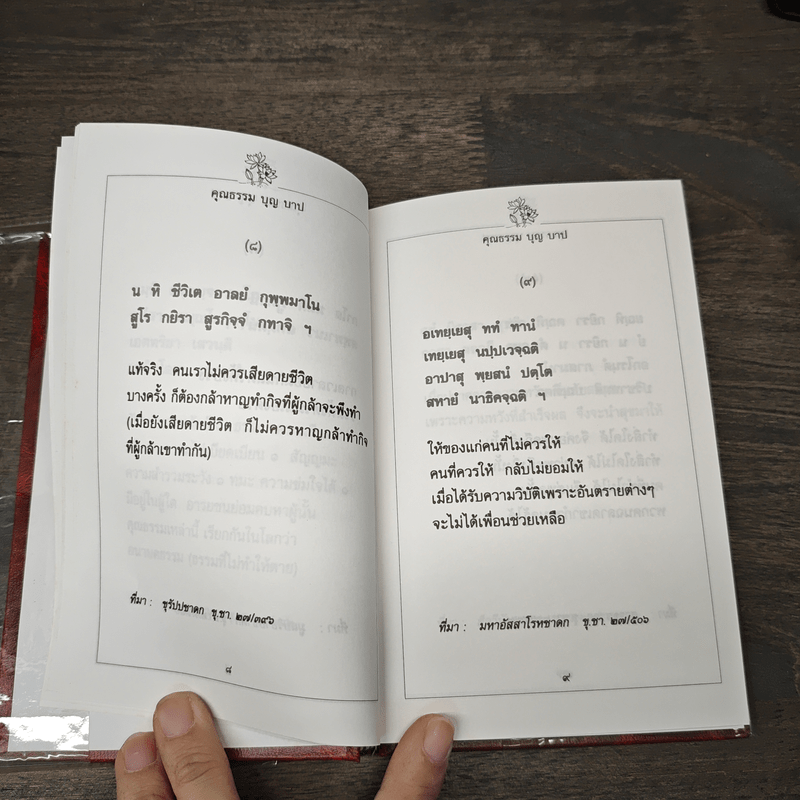 คุณธรรม บุญ บาป
(๘)
น หิ ชีวิเต อาลยํ กุพฺพมาโน
สูโร กยิรา สูรกิจฺจํ กทาจิ ฯ
แท้จริง คนเราไม่ควรเสียดายชีวิต
บางครั้ง ก็ต้องกล้าหาญทำกิจที่ผู้กล้าจะพึงทำ
(เมื่อยังเสียดายชีวิต ก็ไม่ควรหาญกล้าทำกิจ
ที่ผู้กล้าเขาทำกัน)
ที่มา : ขุรัปปชาดก ขุ.ชา. ๒๗/๓๙๖
๘
คุณธรรม บุญ บาป
(๙)
อเทยฺเยสุ ททํ ทานํ
เทยฺเยสุ นปฺปเวจฺฉติ
อาปาสุ พฺยสนํ ปตฺโต
สหายํ นาธิคจฺฉติ ฯ
ให้ของแก่คนที่ไม่ควรให้
คนที่ควรให้ กลับไม่ยอมให้
เมื่อได้รับความวิบัติเพราะอันตรายต่างๆ
จะไม่ได้เพื่อนช่วยเหลือ
ที่มา : มหาอัสสาโรหชาดก ขุ.ชา. ๒๗/๕๐๖
๙